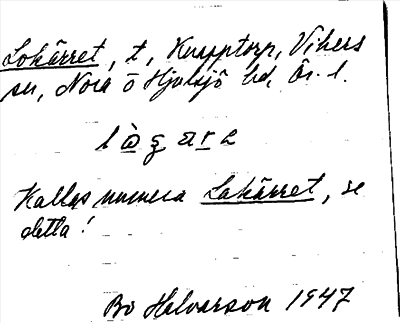 Lokärret, t, Knapptorp, Vikers
sn, Nora o Hjulsjö bd, Ör. l.
Kallas numera Lakärret, se
detta!
Bo Halvarson 1947